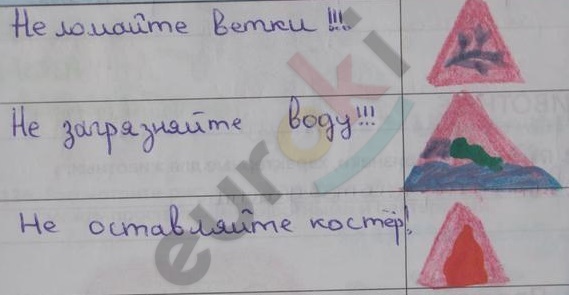 Не ломайте ветки !!!
Не загрязняйте воду!!!
Не оставляйте костёр!
euroki